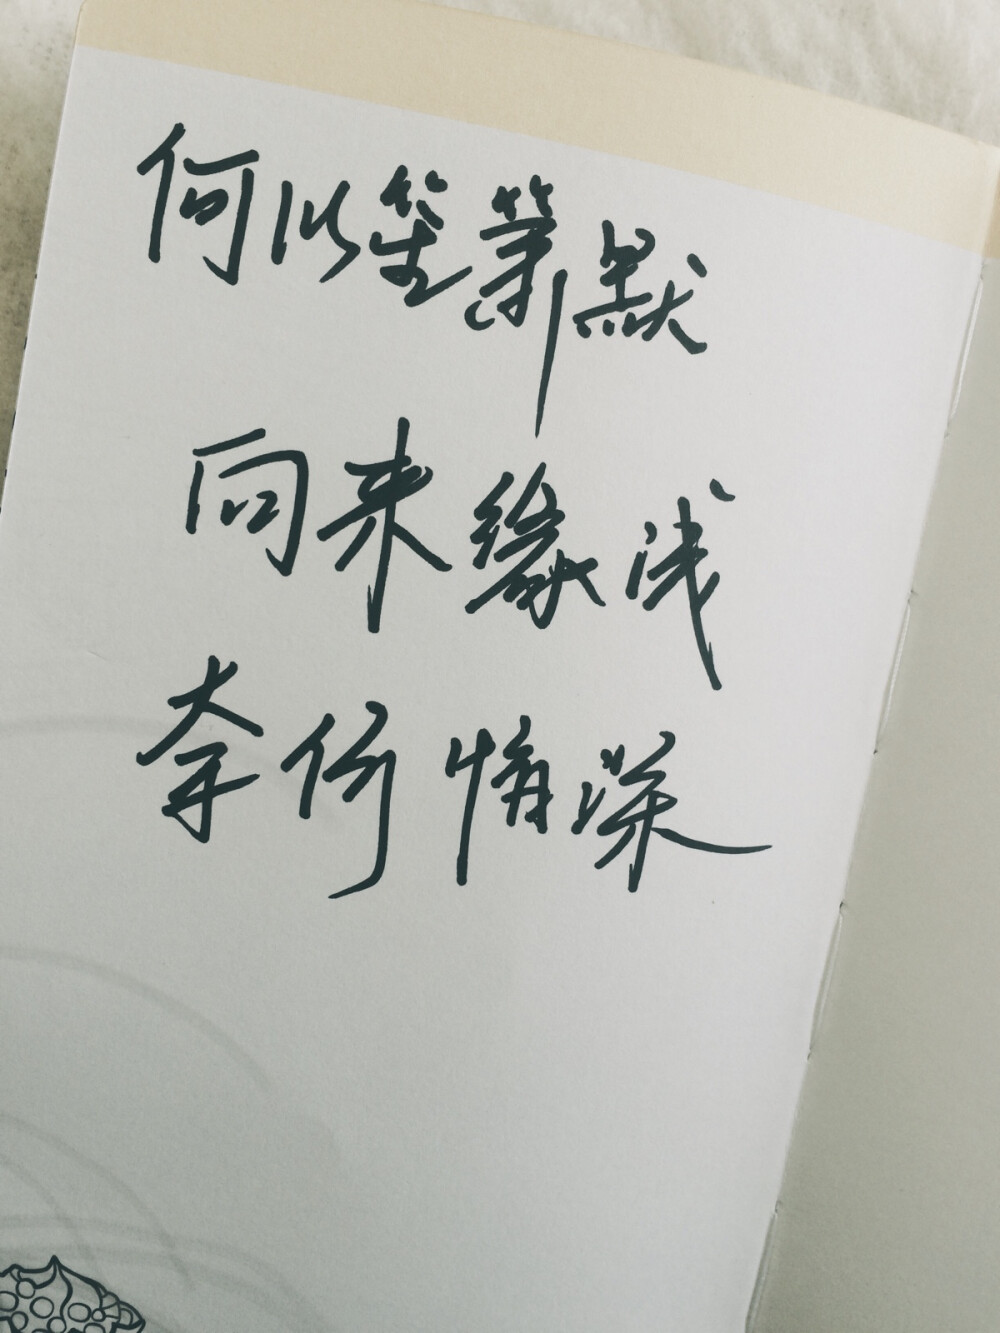 何以笙箫默
向来缘浅
奈何情深